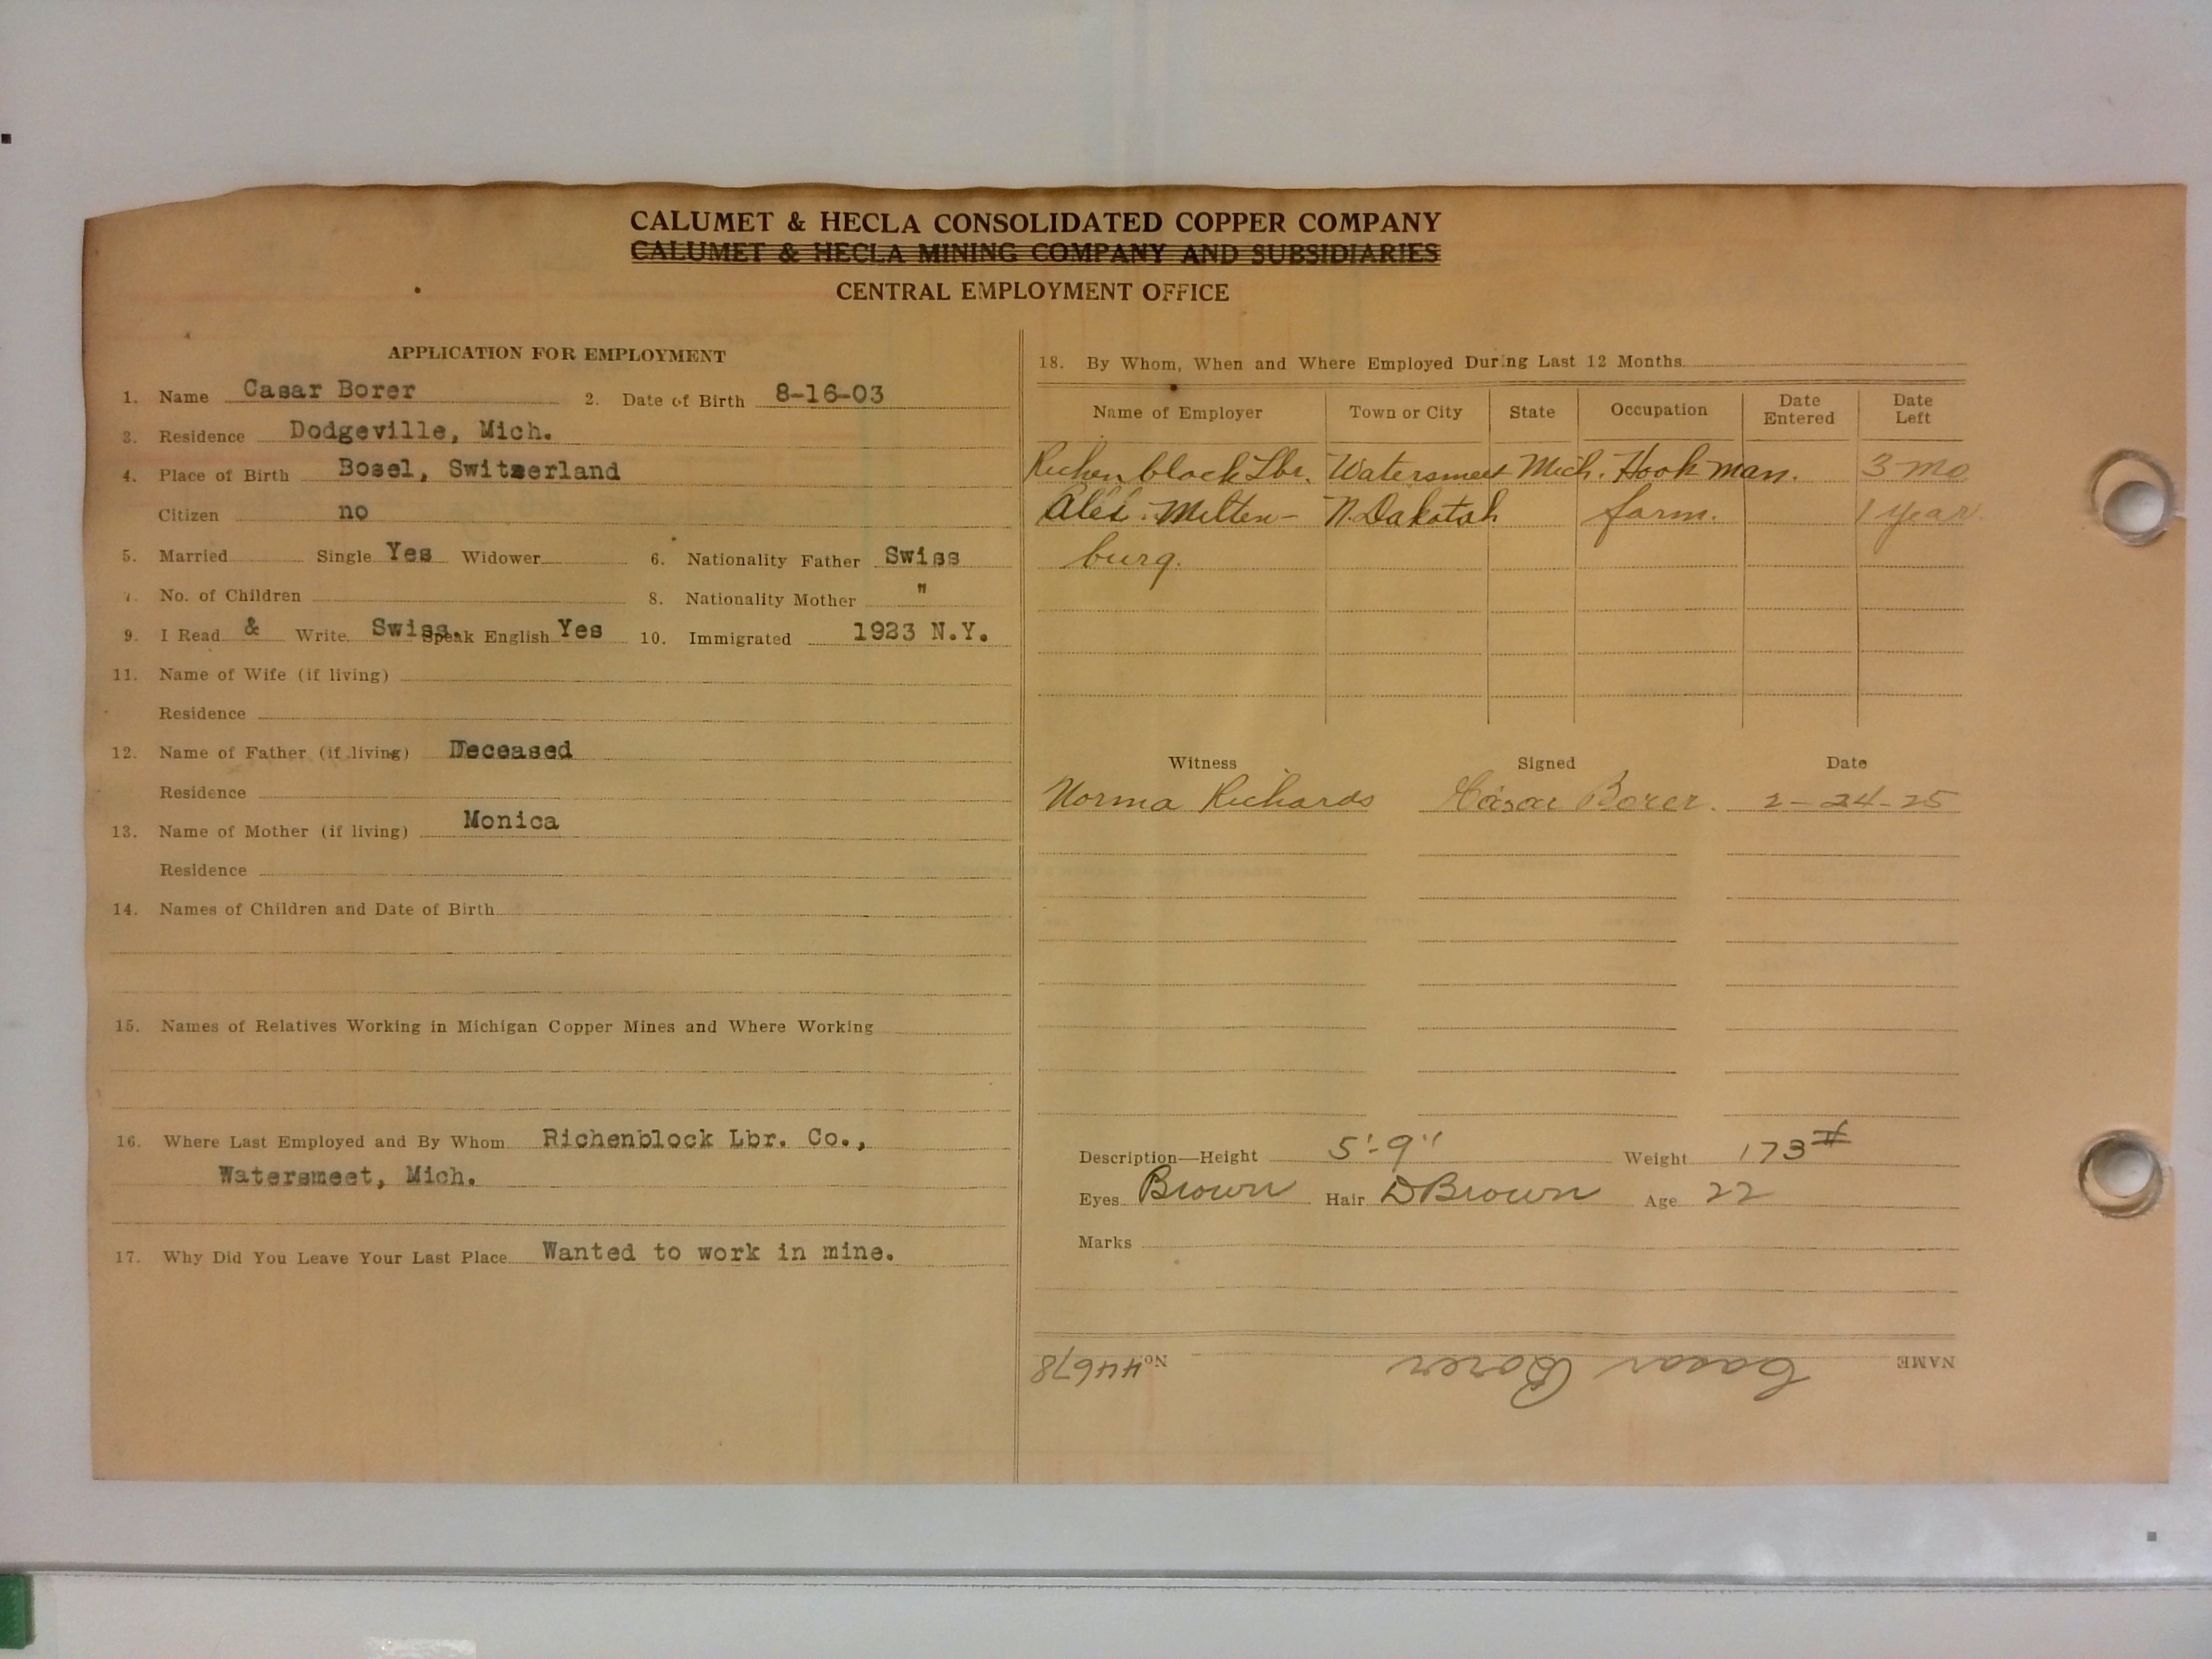 CALUMET & HECLA CONSOLIDATED COPPER COMPANY
CALUMET & HECLA MINING COMPANY AND SUBSIDIARIES
CENTRAL EMPLOYMENT OFFICE
APPLICATION FOR EMPLOYMENT
1. Name Casar Borer 2. Date of Birth 8-16-03
3. Residence Dodgeville, Mich.
4. Place of Birth Bosel, Switzerland
Citizen no
5. Married Single Yes Widower 6. Nationality Father Swiss
7. No. of Children 8. Nationality Mother "
9. I Read & Write Swiss. Speak English Yes 10. Immigrated 1923 N.Y.
11. Name of Wife (if living)
Residence
12. Name of Father (if living) Deceased
Residence
13. Name of Mother (if living) Monica
Residence
14. Names of Children and Date of Birth
15. Names of Relatives Working in Michigan Copper Mines and Where Working
16. Where Last Employed and By Whom Richenblock Lbr. Co.,
Watersmeet, Mich.
17. Why Did You Leave Your Last Place Wanted to work in mine.
18. By Whom, When and Where Employed During Last 12 Months
Name of Employer Town or City State Occupation Date Entered Date Left
Richenblock Lbr. Watersmeet Mich. Hookman. 3 mo
Melten- N. Dakotah farm. 1 year
burg.
Witness Signed Date
Norma Richards Casar Borer. 2-24-25
Description—Height 5'-9" Weight 173#
Eyes Brown Hair D Brown Age 22
Marks
NAME Casar Borer No. 44678